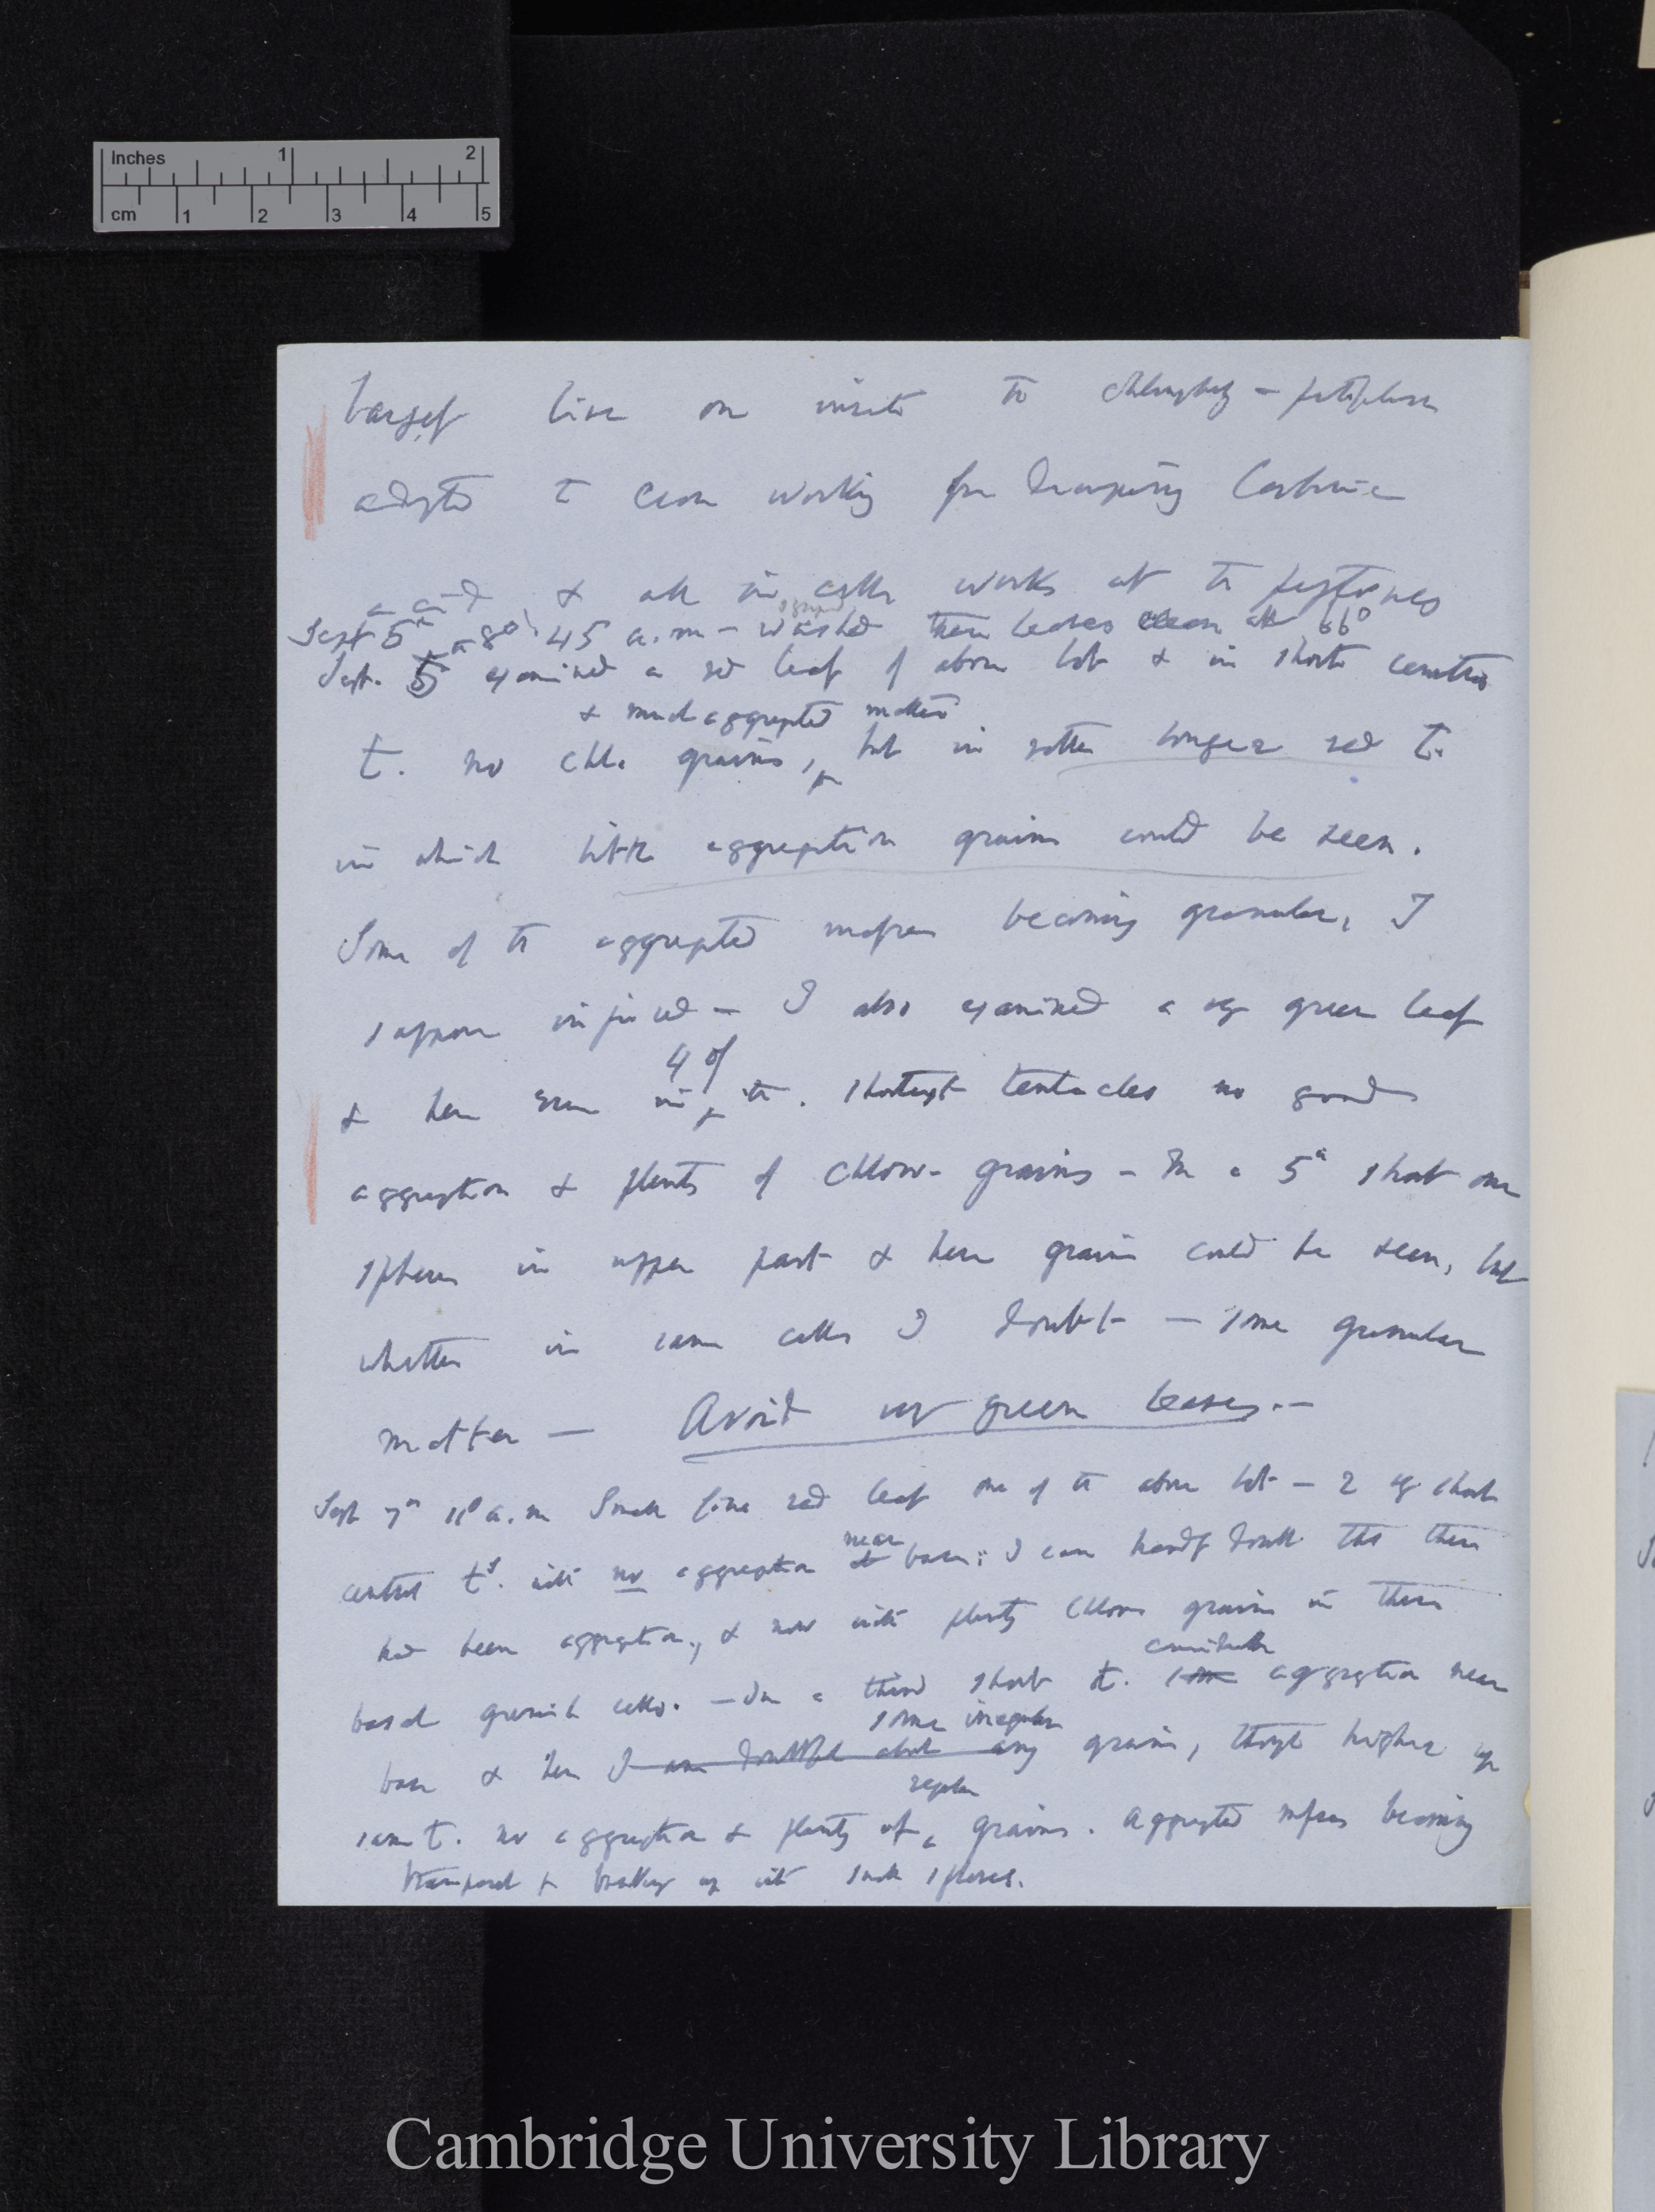 Inches 1 2
cm 1 2 3 4 5
largely live on insects the chlorophyll – protoplasm
adapted to cease working for decomposing Carbonic
acid & all in cells works at the
Sept 5th 8° 45' a.m – washed these leaves clean all 66°
Sept. 5 examined a red leaf of above lot & in short central
& much aggregated matter
t. no chl. grains, but in rather longer red t.
in which little aggregation grains could be seen.
Some of the aggregated masses becoming granular, I
suppose injured – I also examined a very green leaf
4 of
& here even in the shortest tentacles no good
aggregation & plenty of chlor. grains – In a 5th short one
spheres in upper part & here grains could be seen, but
whether in same cells I doubt – some granular
matter – Avoid very green leaves. –
Sept 7th 11° a.m Small fine red leaf one of the above lot – 2 very short
near
central ts. with no aggregation at base: I can hardly doubt that there
had been aggregation, & now with plenty Chlor. grains in these
considerable
basal greenish cells. – In a third short t. some aggregation near
some irregular
base & here I am doubtful about any grains, though higher up
regular
same t. no aggregation & plenty of grains. Aggregated masses becoming
transparent & breaking up into small spheres.
Cambridge University Library